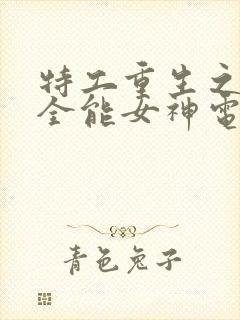 特工重生之
全能女神電
青色兔子